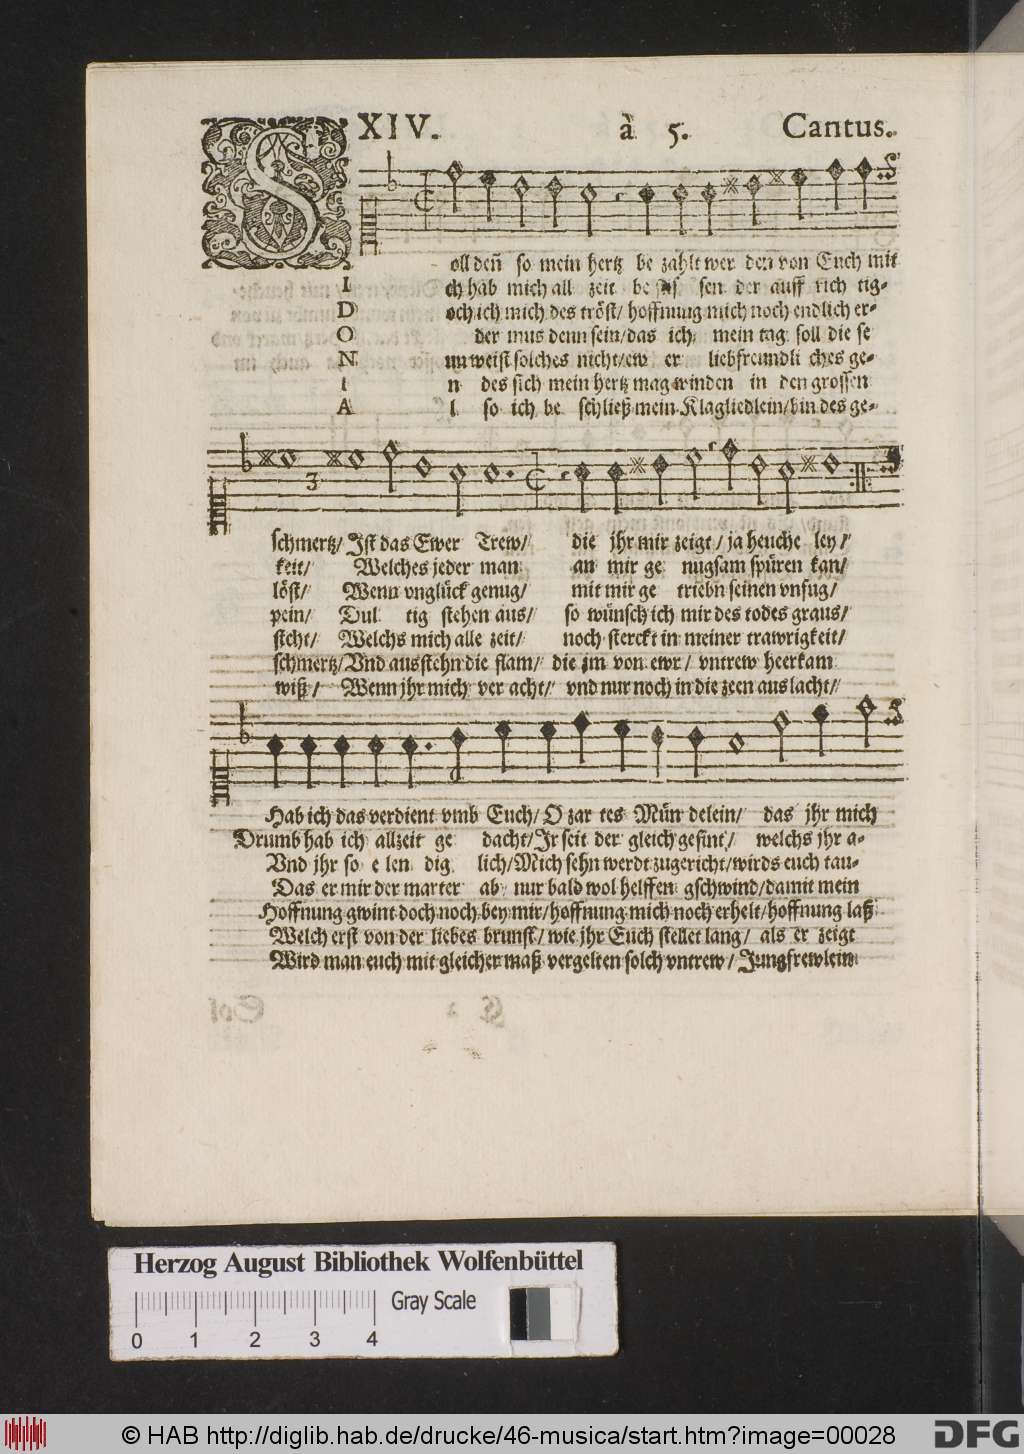 XIV. à 5. Cantus.
S
oll deñ so mein hertz be zahlt wer den von Euch mit
I ch hab mich all zeit be flis sen der auff rich tig-
D och ich mich des tröst/ hoffnung mich noch endlich er-
O der mus denn sein/das ich mein tag soll die se
N un weist solches nicht/ew er liebfreundli ches ge-
I n des sich mein hertz mag winden in den grossen
A l so ich be schließ mein Klagliedlein/bin des ge-
3
schmertz/ Ist das Ewer Trew/ die jhr mir zeigt/ ja heuche ley/
keit/ Welches jeder man an mir ge nugsam spüren kan/
löst/ Wenn vnglück genug/ mit mir ge triebn seinen vnfug/
pein/ Dul tig stehen aus/ so wünsch ich mir des todes graus/
sicht/ Welchs mich alle zeit/ noch sterckt in meiner trawrigkeit/
schmertz/Vnd ausstehn die flam/ die zm von ewr/ vntrew heerkam
wiß/ Wenn jhr mich ver acht/ vnd nur noch in die zeen aus lacht/
Hab ich das verdient vmb Euch/ O zar tes Mün delein/ das jhr mich
Drumb hab ich allzeit ge dacht/Ir seit der gleich gesint/ welchs jhr a-
Vnd jhr so e len dig lich/Mich sehn werdt zugericht/wirds euch tau-
Das er mir der marter ab nur bald wol helffen gschwind/damit mein
Hoffnung gwint doch noch bey mir/hoffnung mich noch erhelt/hoffnung laß
Welch erst von der liebes brunst/ wie jhr Euch stellet lang/ als er zeigt
Wird man euch mit gleicher maß vergelten solch vntrew/ Jungfrewlein
Herzog August Bibliothek Wolfenbüttel
Gray Scale
0 1 2 3 4
© HAB http://diglib.hab.de/drucke/46-musica/start.htm?image=00028
DFG